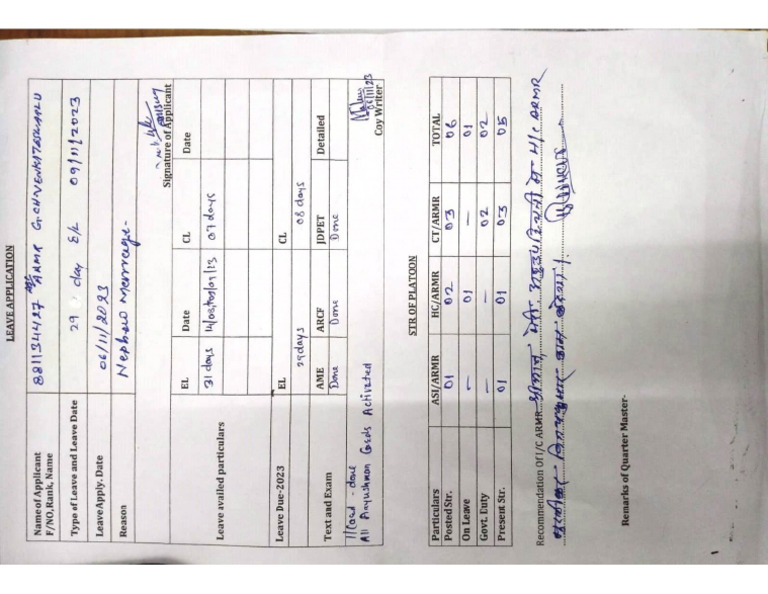 LEAVE APPLICATION
Name of Applicant F/NO,Rank, Name 881134427 ARMR G.CH.VENKATESWARLU
Type of Leave and Leave Date 29 day E/L 09/11/2023
Leave Apply. Date 06/11/2023
Reason Nephew Marriage-
Signature of Applicant
Leave availed particulars EL Date CL Date
31 days 07 days
Leave Due-2023 EL CL
29 days 08 days
Text and Exam AME ARCF JDPET Detailed
Done Done Done
I/Card - done
All Aayushman Cards Activated
Coy Writer
STR OF PLATOON
Particulars ASI/ARMR HC/ARMR CT/ARMR TOTAL
Posted Str. 01 02 03 06
On Leave — 01 — 01
Govt. Duty — — 02 02
Present Str. 01 01 03 05
Recommendation Of I/C ARMR श्रीमान, मेरी अनुपस्थिती में H/C ARMR
काम करेगा।
Remarks of Quarter Master-